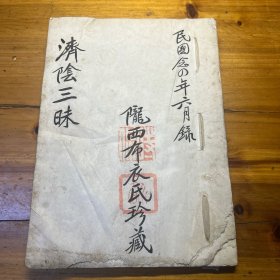 民國念四年六月錄
隴西布衣氏珍藏
濟陰三昧